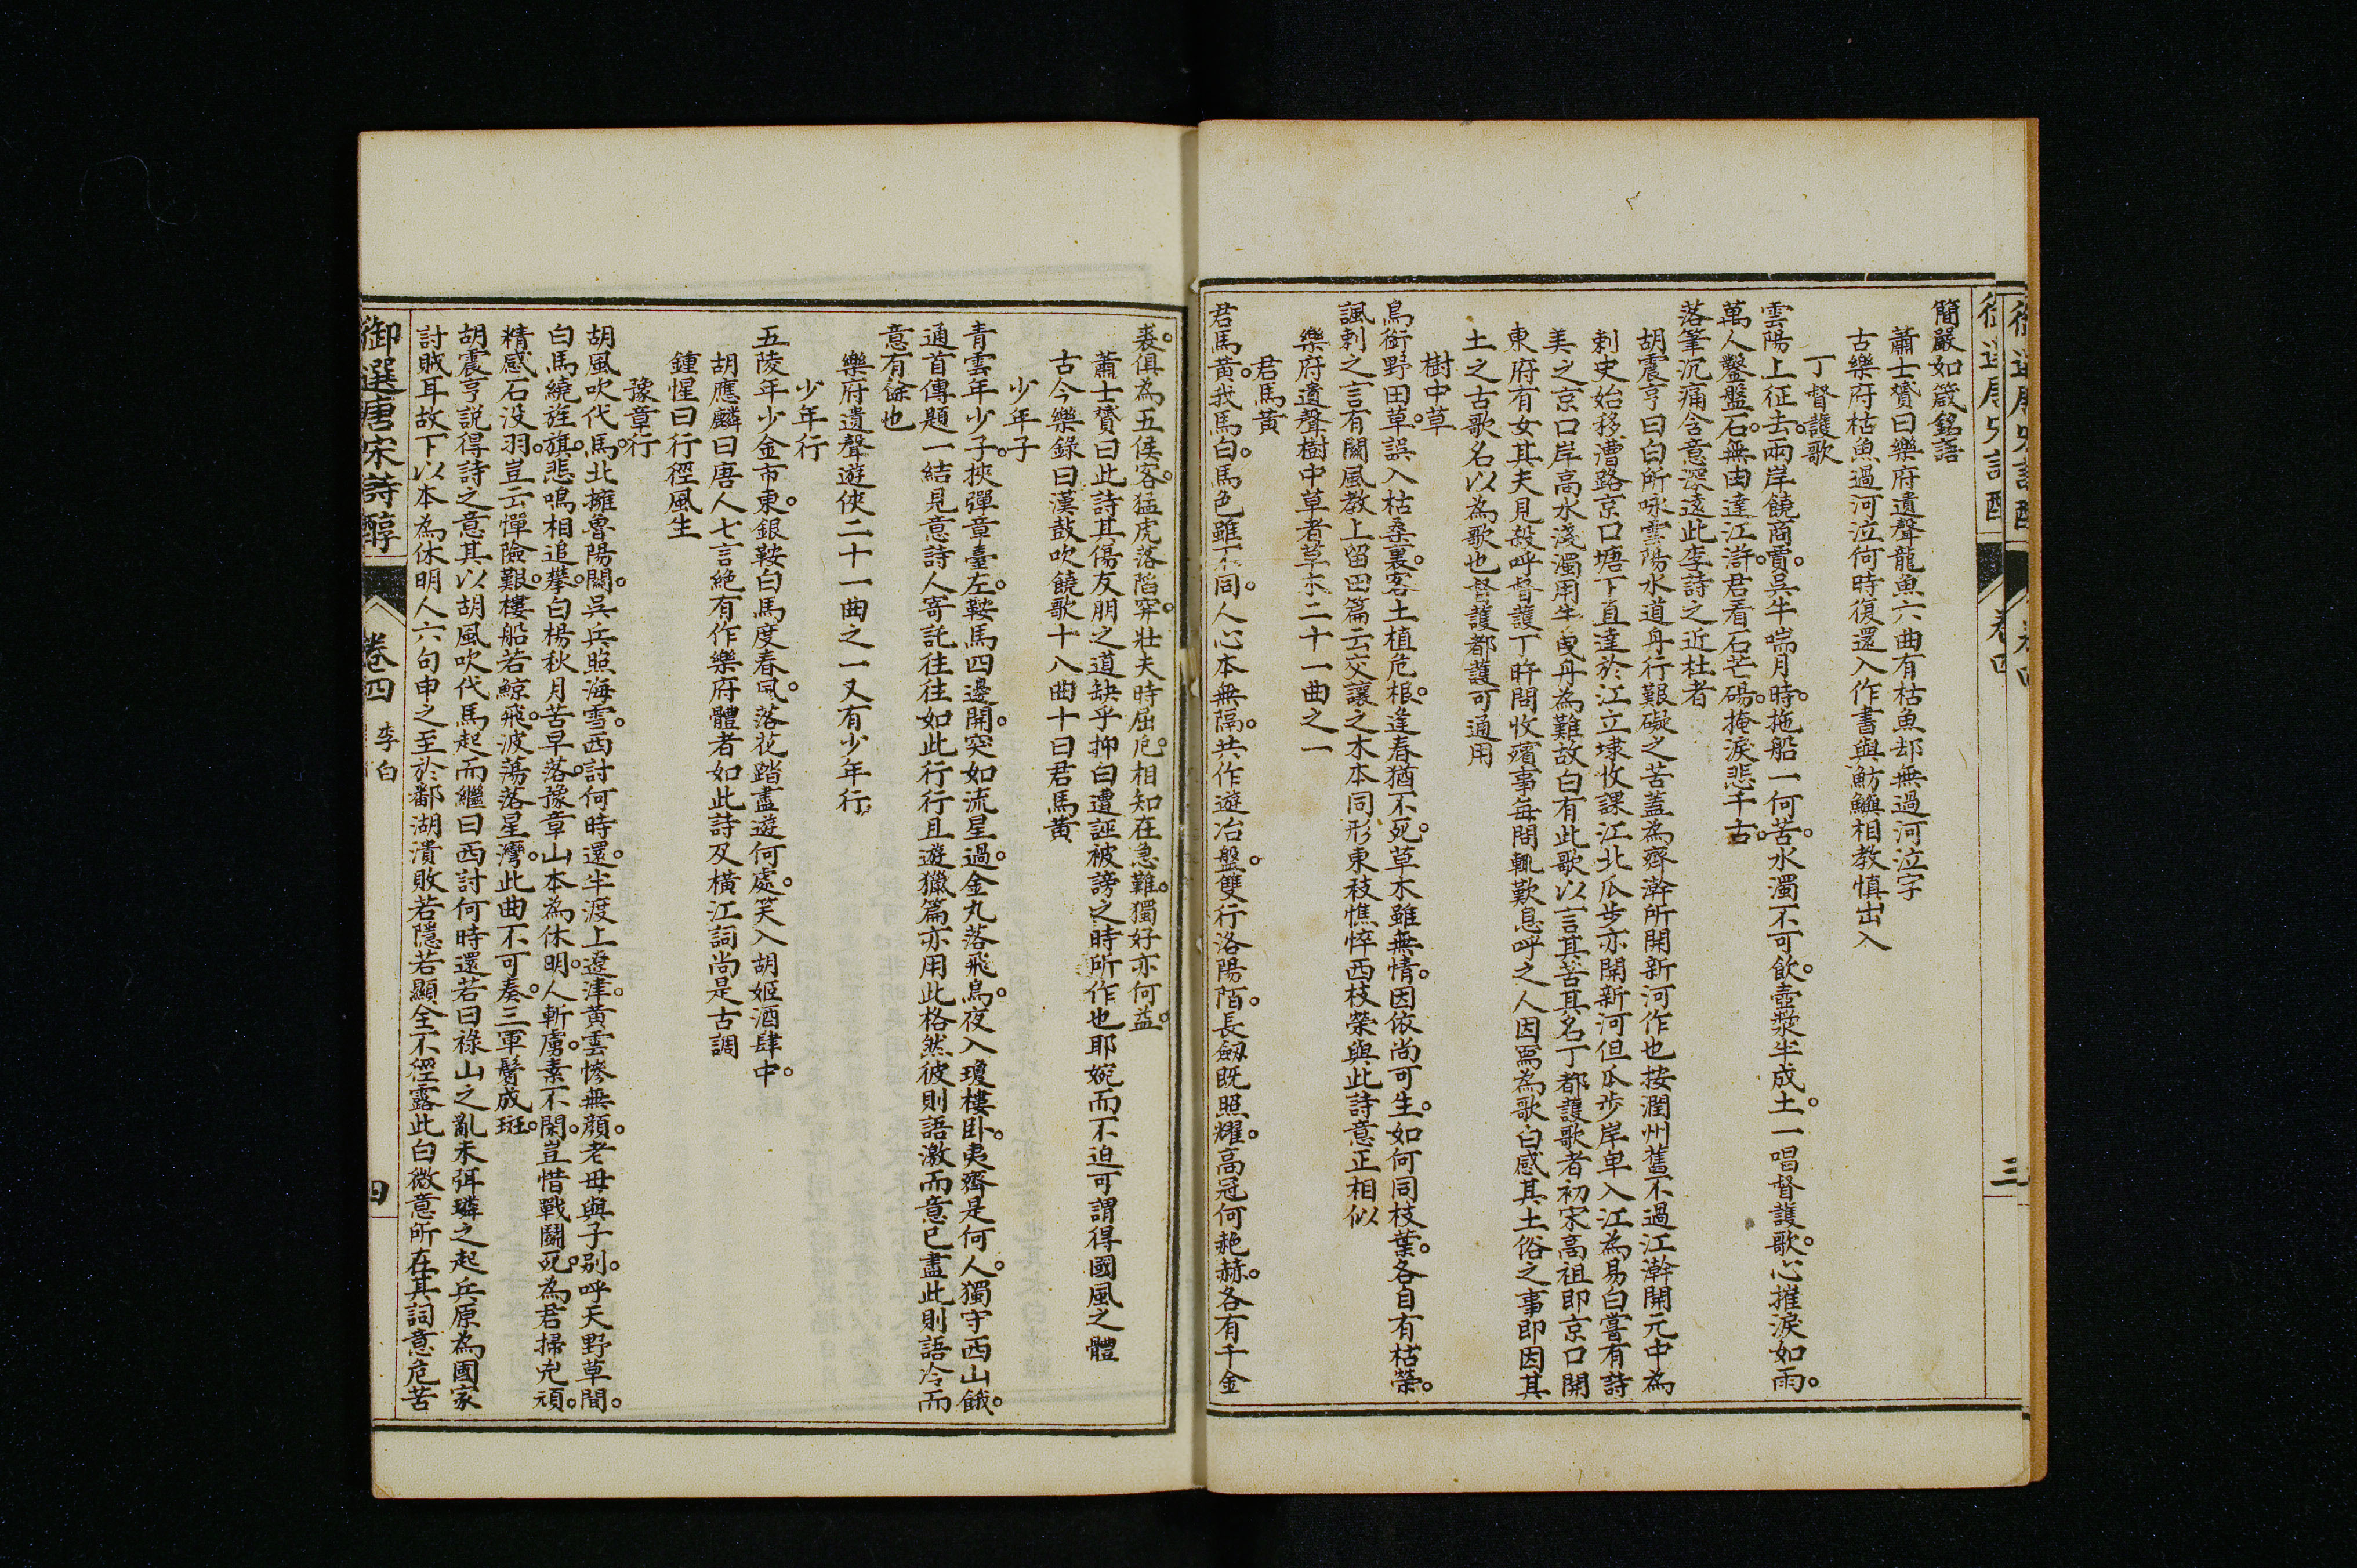 簡嚴如箴銘語
蕭士贇曰樂府遺聲龍魚六曲有枯魚却無過河泣字
古樂府枯魚過河泣何時復還入作書與魴鱮相教慎出入
丁督護歌
雲陽上征去。兩岸饒商賈。吳牛喘月時。拖船一何苦。水濁不可飲。壺漿半成土。一唱督護歌。心摧淚如雨。
萬人鑿盤石。無由達江滸。君看石芒碭。掩淚悲千古。
落筆沉痛含意深遠此李詩之近杜者
胡震亨曰白所咏雲陽水道舟行艱礙之苦蓋為齊澣所開新河作也按潤州舊不過江澣開元中為
刺史始移漕路京口塘下直達於江立埭收課江北瓜步亦開新河但瓜步岸卑入江為易白嘗有詩
美之京口岸高水淺濁用牛曳舟為難故白有此歌以言其苦其名丁都護歌者初宋高祖即京口開
東府有女其夫見殺呼督護丁旿問收殯事每問輒歎息呼之人因寫為歌白感其土俗之事即因其
土之古歌名以為歌也督護都護可通用
樹中草
鳥銜野田草。誤入枯桑裏。客土植危根。逢春猶不死。草木雖無情。因依尚可生。如何同枝葉。各自有枯榮。
諷刺之言有關風教上留田篇云交讓之木本同形東枝憔悴西枝榮與此詩意正相似
樂府遺聲樹中草者草木二十一曲之一
君馬黃
君馬黃。我馬白。馬色雖不同。人心本無隔。共作遊冶盤。雙行洛陽陌。長劔既照耀。高冠何赩赫。各有千金
裘。俱為五侯客。猛虎落陷穽。壯夫時屈厄。相知在急難。獨好亦何益。
蕭士贇曰此詩其傷友朋之道缺乎抑白遭誣被謗之時所作也耶婉而不迫可謂得國風之體
古今樂錄曰漢鼓吹饒歌十八曲十曰君馬黃
少年子
青雲年少子。挾彈章臺左。鞍馬四邊開。突如流星過。金丸落飛鳥。夜入瓊樓臥。夷齊是何人。獨守西山餓。
通首傳題一結見意詩人寄託往往如此行行且遊獵篇亦用此格然彼則語激而意已盡此則語冷而
意有餘也
樂府遺聲遊俠二十一曲之一又有少年行
少年行
五陵年少金市東。銀鞍白馬度春風。落花踏盡遊何處。笑入胡姬酒肆中。
胡應麟曰唐人七言絶有作樂府體者如此詩及橫江詞尚是古調
鍾惺曰行徑風生
豫章行
胡風吹代馬。北擁魯陽關。吳兵照海雪。西討何時還。半渡上遼津。黃雲慘無顔。老母與子别。呼天野草間。
白馬繞旌旗。悲鳴相追攀。白楊秋月苦。早落豫章山。本為休明人。斬虜素不閑。豈惜戰鬬死。為君掃兇頑。
精感石没羽。豈云憚險艱。樓船若鯨飛。波蕩落星灣。此曲不可奏。三軍鬢成斑。
胡震亨説得詩之意其以胡風吹代馬起而繼曰西討何時還若曰祿山之亂未弭璘之起兵原為國家
討賊耳故下以本為休明人六句申之至於鄱湖潰敗若隱若顯全不徑露此白微意所在其詞意危苦
御選唐宋詩醇
卷四
李白
四
卷四
三